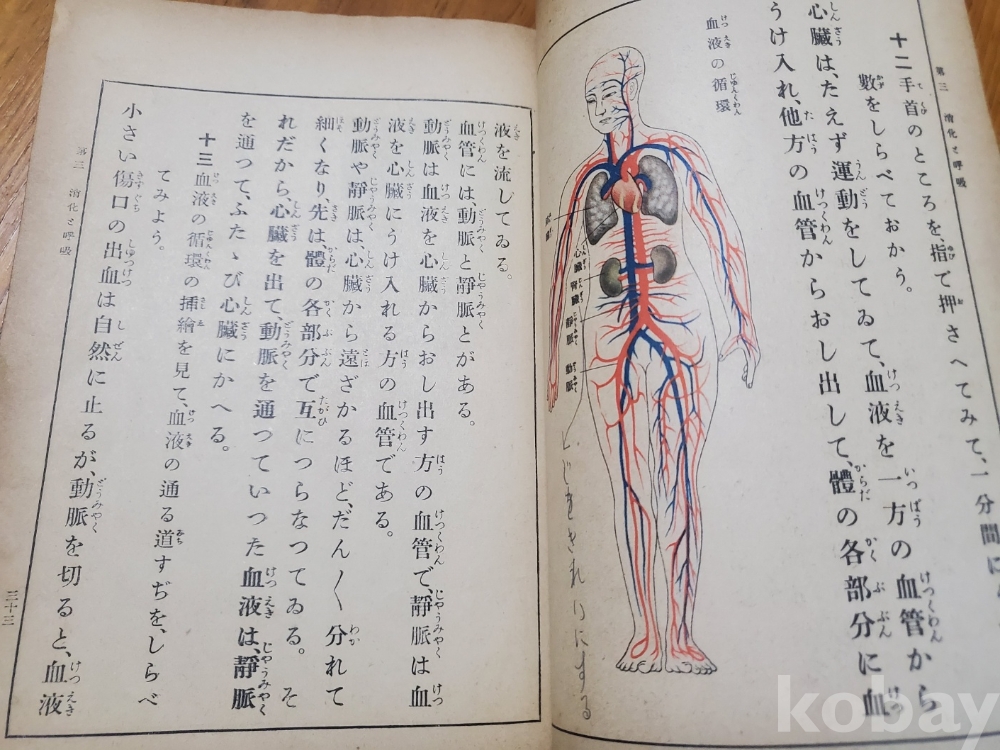 第三 消化と呼吸
十二 手首のところを指で押さへてみて、一分間に
數をしらべておかう。
心臟は、たえず運動をしてゐて、血液を一方の血管から
うけ入れ、他方の血管からおし出して、體の各部分に血
血液の循環
心臟
腎臟
靜脈
動脈
にする
液を流してゐる。
血管には、動脈と靜脈とがある。
動脈は血液を心臟からおし出す方の血管で、靜脈は血
液を心臟にうけ入れる方の血管である。
動脈や靜脈は、心臟から遠ざかるほど、だん〳〵分れて
細くなり、先は、體の各部分で互につらなつてゐる。そ
れだから、心臟を出て、動脈を通つていつた血液は、靜脈
を通つて、ふたゝび心臟にかへる。
十三 血液の循環の挿繪を見て、血液の通る道すぢを、しらべ
てみよう。
小さい傷口の出血は自然に止るが、動脈を切ると、血液
第三 消化と呼吸
三十三
kobay